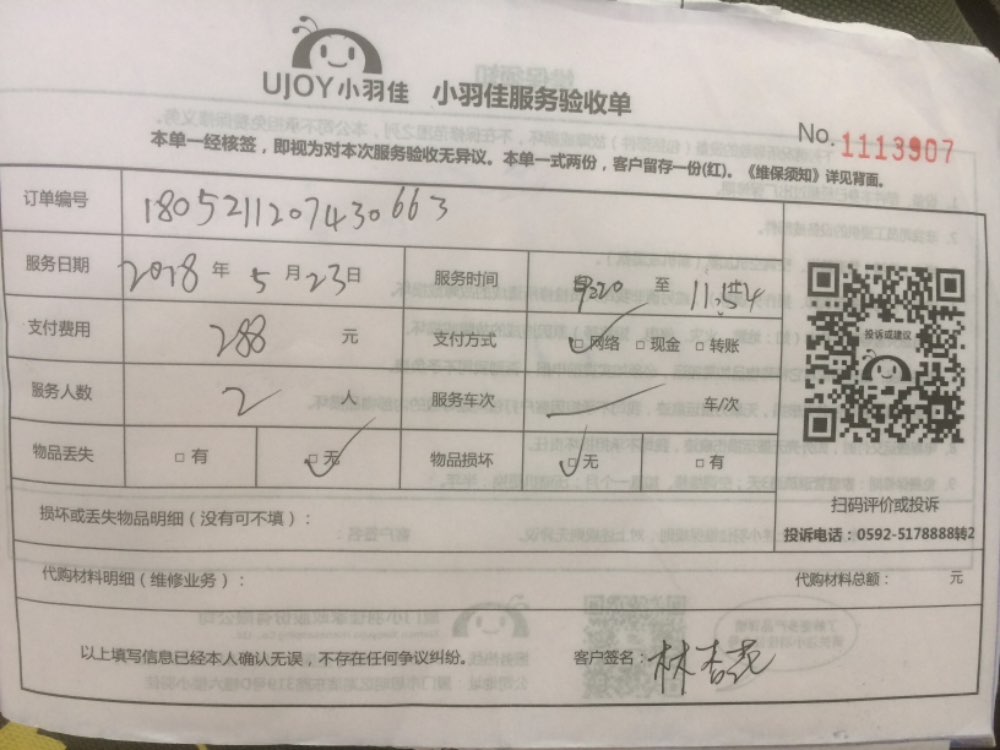 UJOY小羽佳 小羽佳服务验收单
No. 1113907
本单一经核签，即视为对本次服务验收无异议。本单一式两份，客户留存一份(红)。《维保须知》详见背面。
订单编号 1805211207430663
服务日期 2018 年 5 月 23 日 服务时间 至 11:54
支付费用 288 元 支付方式 ☑网络 □现金 □转账
服务人数 2 人 服务车次 车/次
物品丢失 □有 ☑无 物品损坏 ☑无 □有
投诉或建议
扫码评价或投诉
投诉电话：0592-5178888转2
损坏或丢失物品明细（没有可不填）：
代购材料明细（维修业务）： 代购材料总额： 元
以上填写信息已经本人确认无误，不存在任何争议纠纷。 客户签名：林杏花